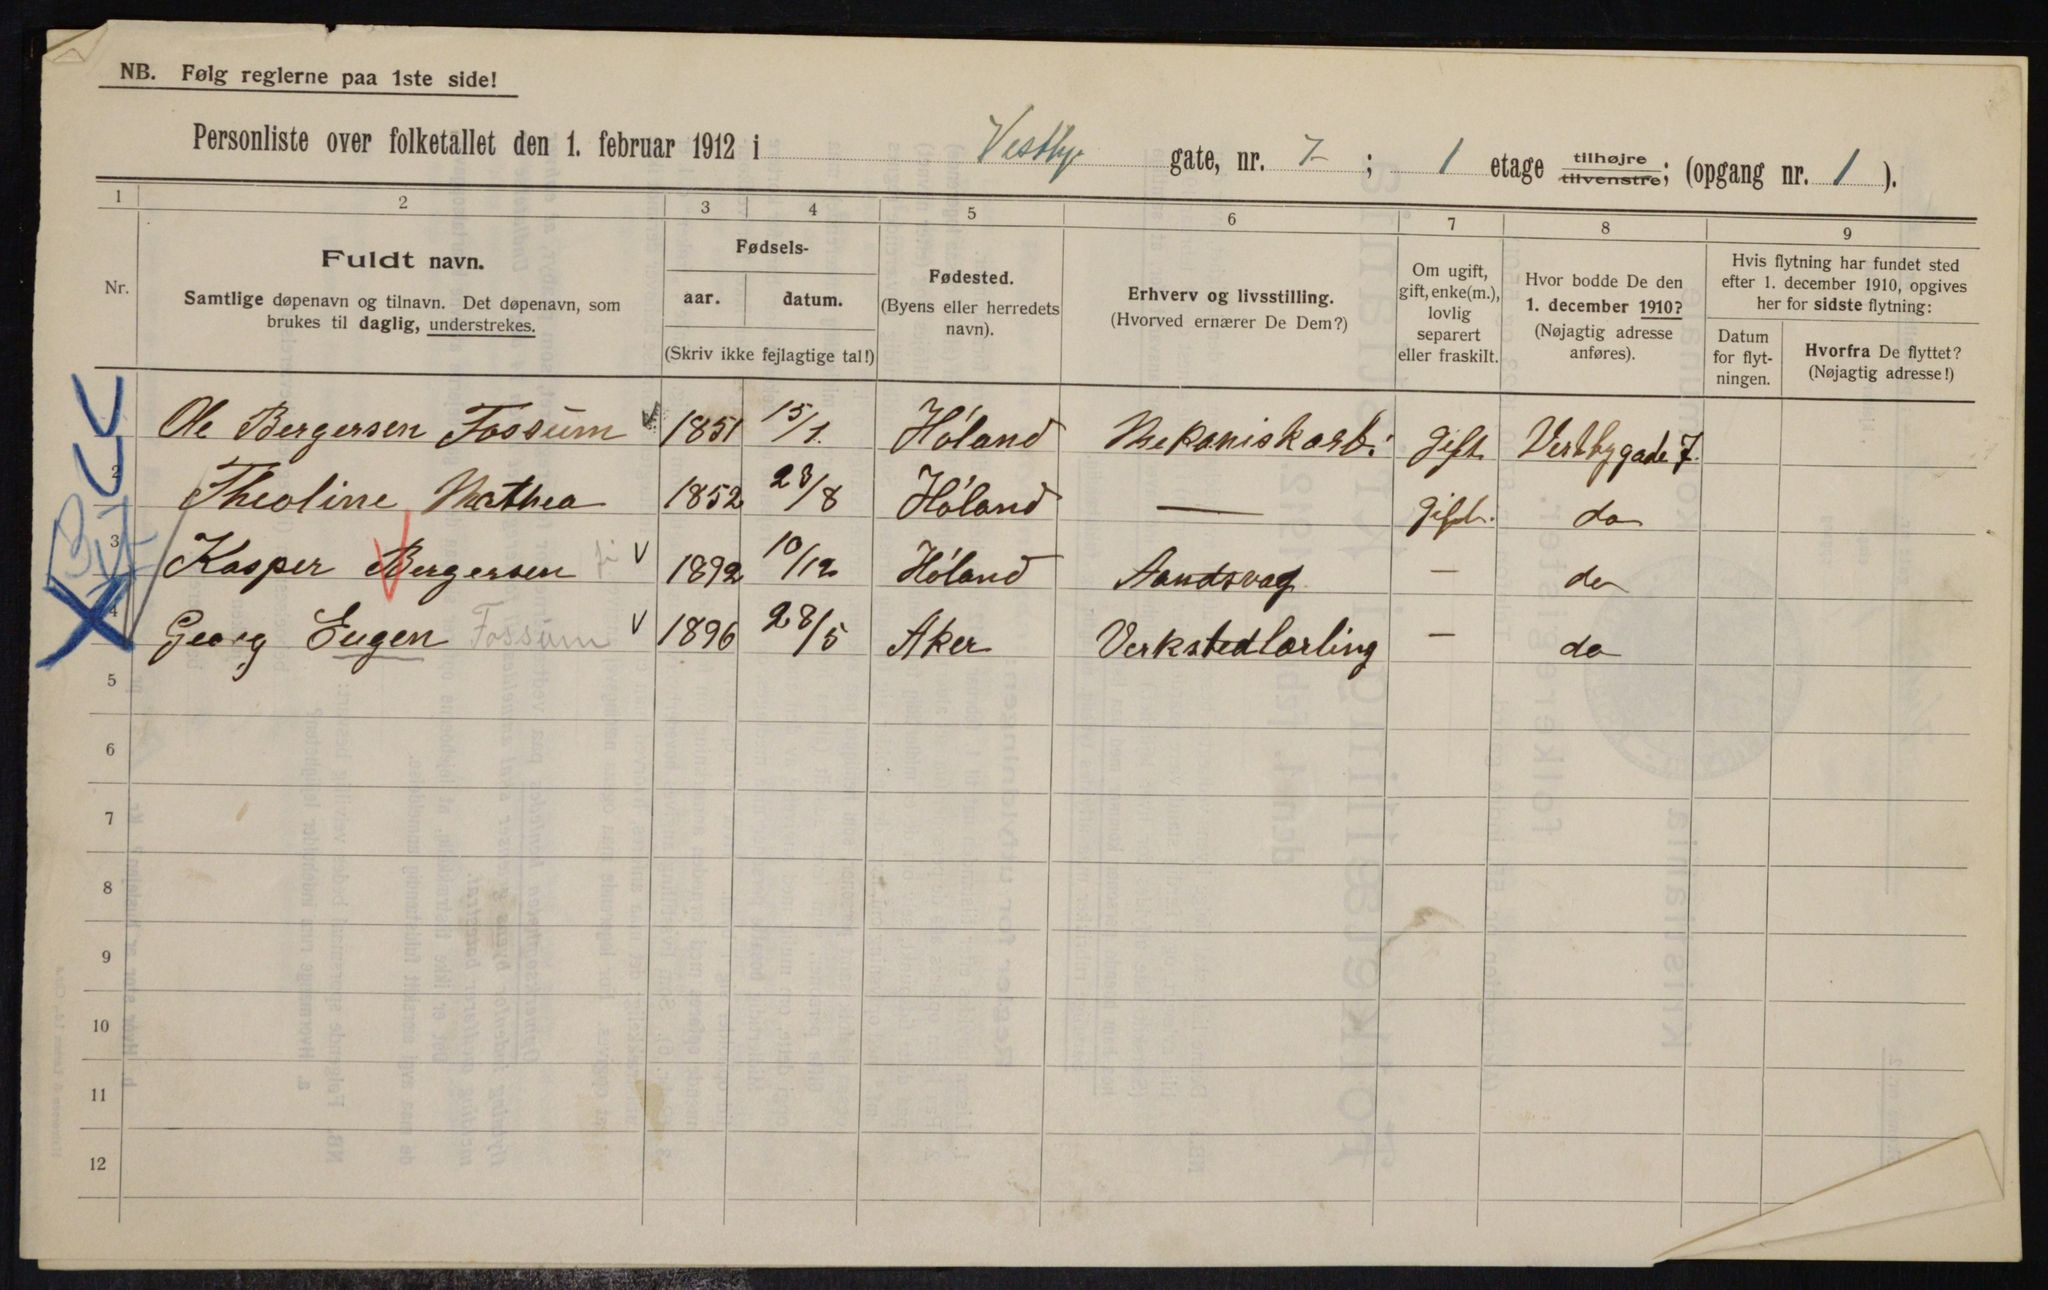 NB. Følg reglerne paa 1ste side!
Personliste over folketallet den 1. februar 1912 i Vestby gate, nr. 7 ; 1 etage tilhøjre tilvenstre; (opgang nr. 1 ).
1 2 3 4 5 6 7 8 9
Nr.
Fuldt navn.
Samtlige døpenavn og tilnavn. Det døpenavn, som
brukes til daglig, understrekes.
Fødsels-
aar. datum.
(Skriv ikke fejlagtige tal!)
Fødested.
(Byens eller herredets
navn).
Erhverv og livsstilling.
(Hvorved ernærer De Dem?)
Om ugift,
gift, enke(m.),
lovlig
separert
eller fraskilt.
Hvor bodde De den
1. december 1910?
(Nøjagtig adresse
anføres).
Hvis flytning har fundet sted
efter 1. december 1910, opgives
her for sidste flytning:
Datum
for flyt-
ningen.
Hvorfra De flyttet?
(Nøjagtig adresse!)
Ole Bergersen Fossum 1851 15/1. Høland Mekaniskarb. gift. Vestbygade 7.
2 Theoline Mathea 1852 28/8 Høland — gift. do
3 Kasper Bergersen 1892 10/12 Høland Aandsvag — do
4 Georg Eugen Fossum 1896 28/5 Aker Verkstedlærling — do
5
6
7
8
9
10
11
12